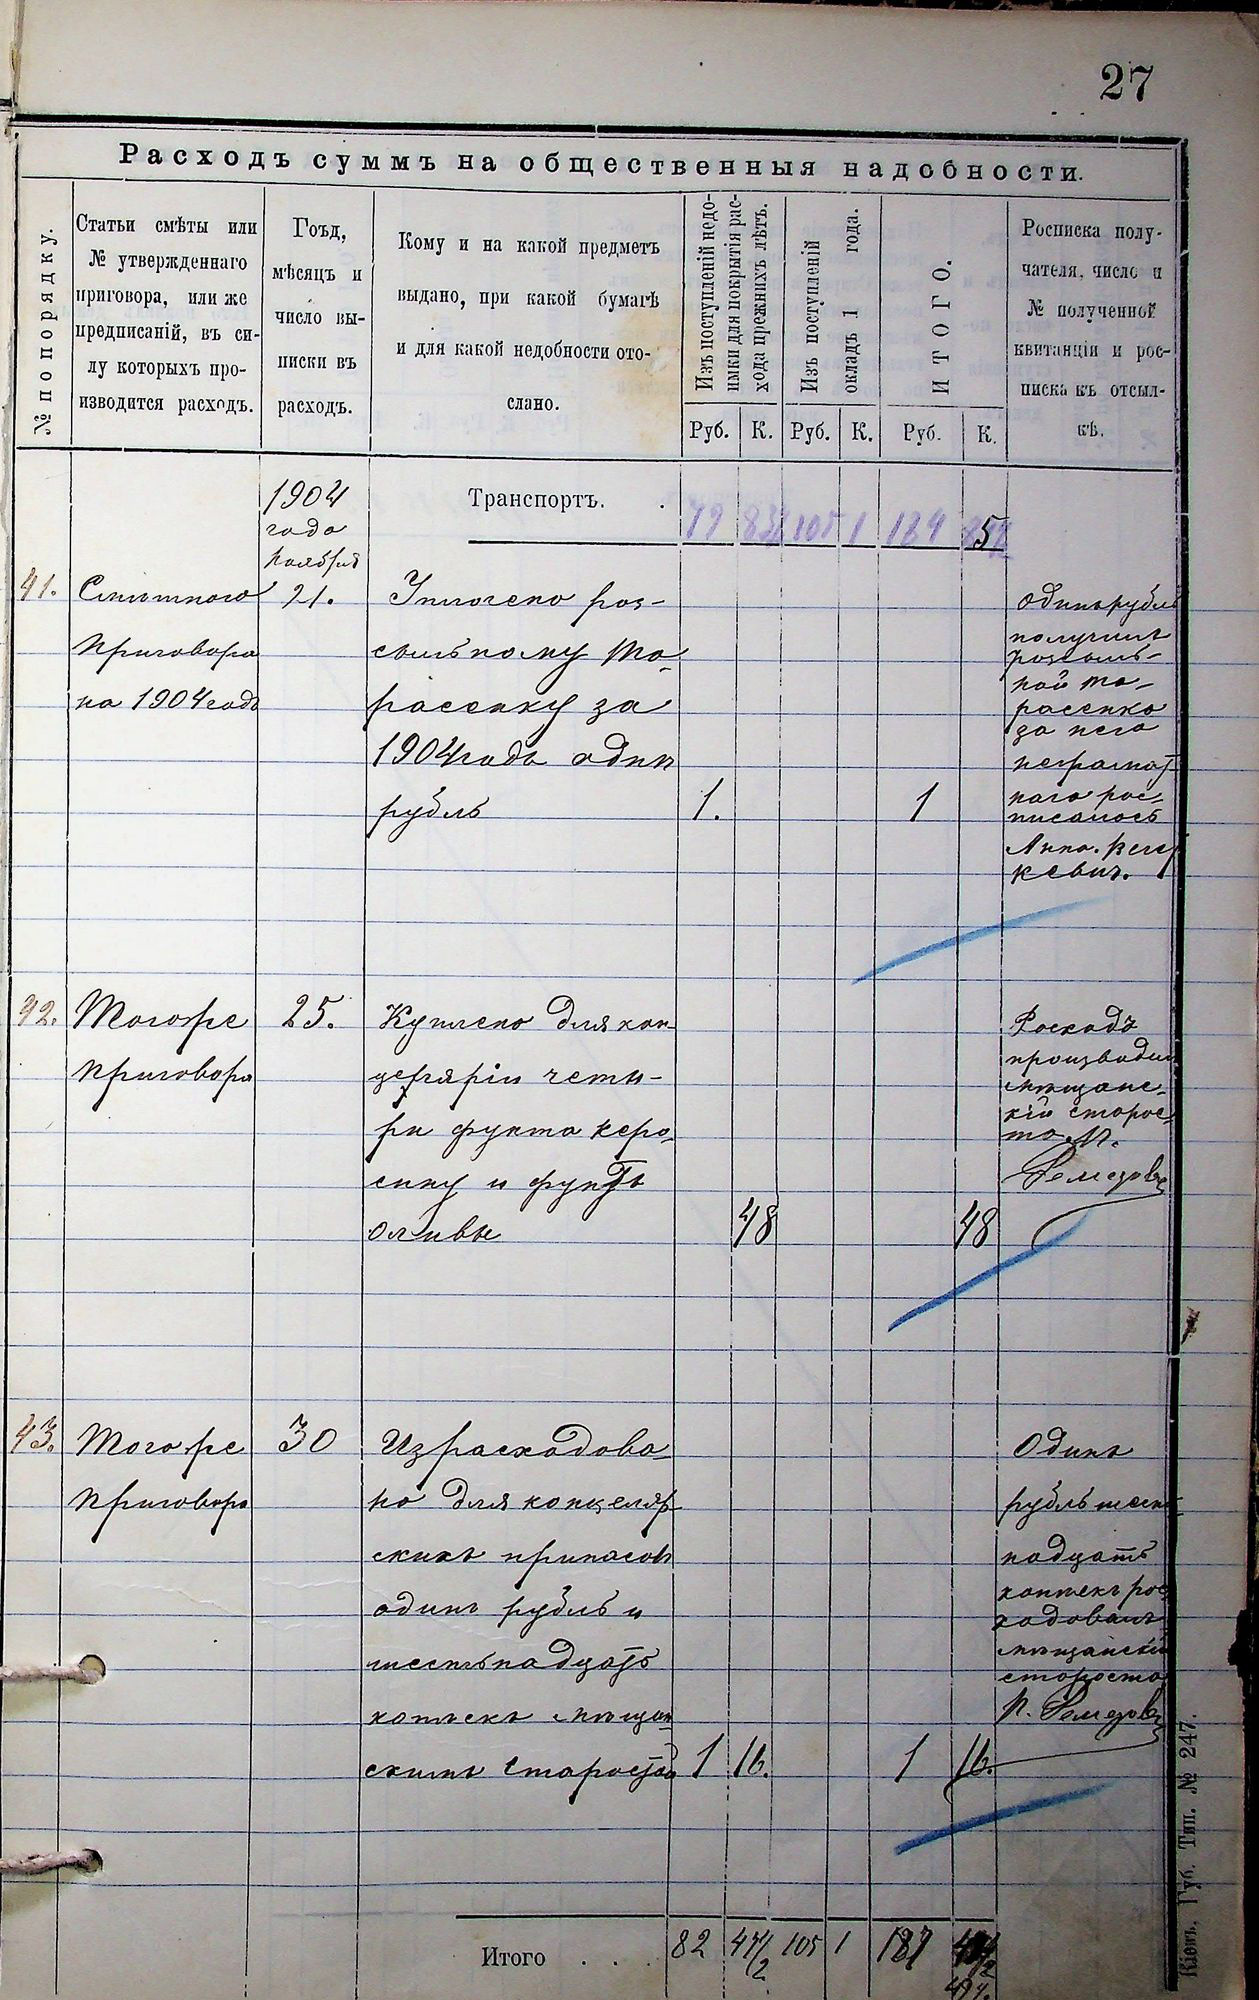 27
Расходъ суммъ на общественныя надобности.
№ по порядку.
Статьи смѣты или
№ утвержденнаго
приговора, или же
предписаній, въ си-
лу которыхъ про-
изводится расходъ.
Гоъд,
мѣсяцъ и
число вы-
писки въ
расходъ.
Кому и на какой предметъ
выдано, при какой бумагѣ
и для какой недобности ото-
слано.
Изъ поступленій недо-
имки для покрытія рас-
хода прежнихъ лѣтъ.
Изъ поступленій
окладъ 1 года.
ИТОГО.
Росписка полу-
чателя, число и
№ полученной
квитанціи и рос-
писка къ отсыл-
кѣ.
Руб. К. Руб. К. Руб. К.
1904
года
ноября
Транспортъ. .
79 105 1 184
41. Смѣтного 21. Уплочено роз-
приговора сыльному Та-
на 1904 годъ расенку за
1904 годъ один
рубль 1. 1
Одинъ рубль
получилъ
розсыль-
ной Та-
расенко
за него
неграмот
наго рос-
писалась
Анна
кевич.
42. Того же 25. Куплено для кан-
приговора целяріи четы-
ри фунта керо-
сину и фунтъ
оливы 48 48
Росходъ
производил
мѣщанс-
кій старос-
та П.
Ремезовъ
43. Того же 30 Израсходова-
приговора но для канцеляр
скихъ припасовъ
одинъ рубль и
шестьнадцать
копѣекъ мѣщан
скимъ старостой 1 16. 1 16.
Одинъ
рубль шест
надцать
копѣекъ рос
ходовалъ
мѣщанскій
староста
П. Ремезовъ
Итого . . . . 82 47 1/2 105 1 187
Кіевъ, Губ. Тип. № 247.